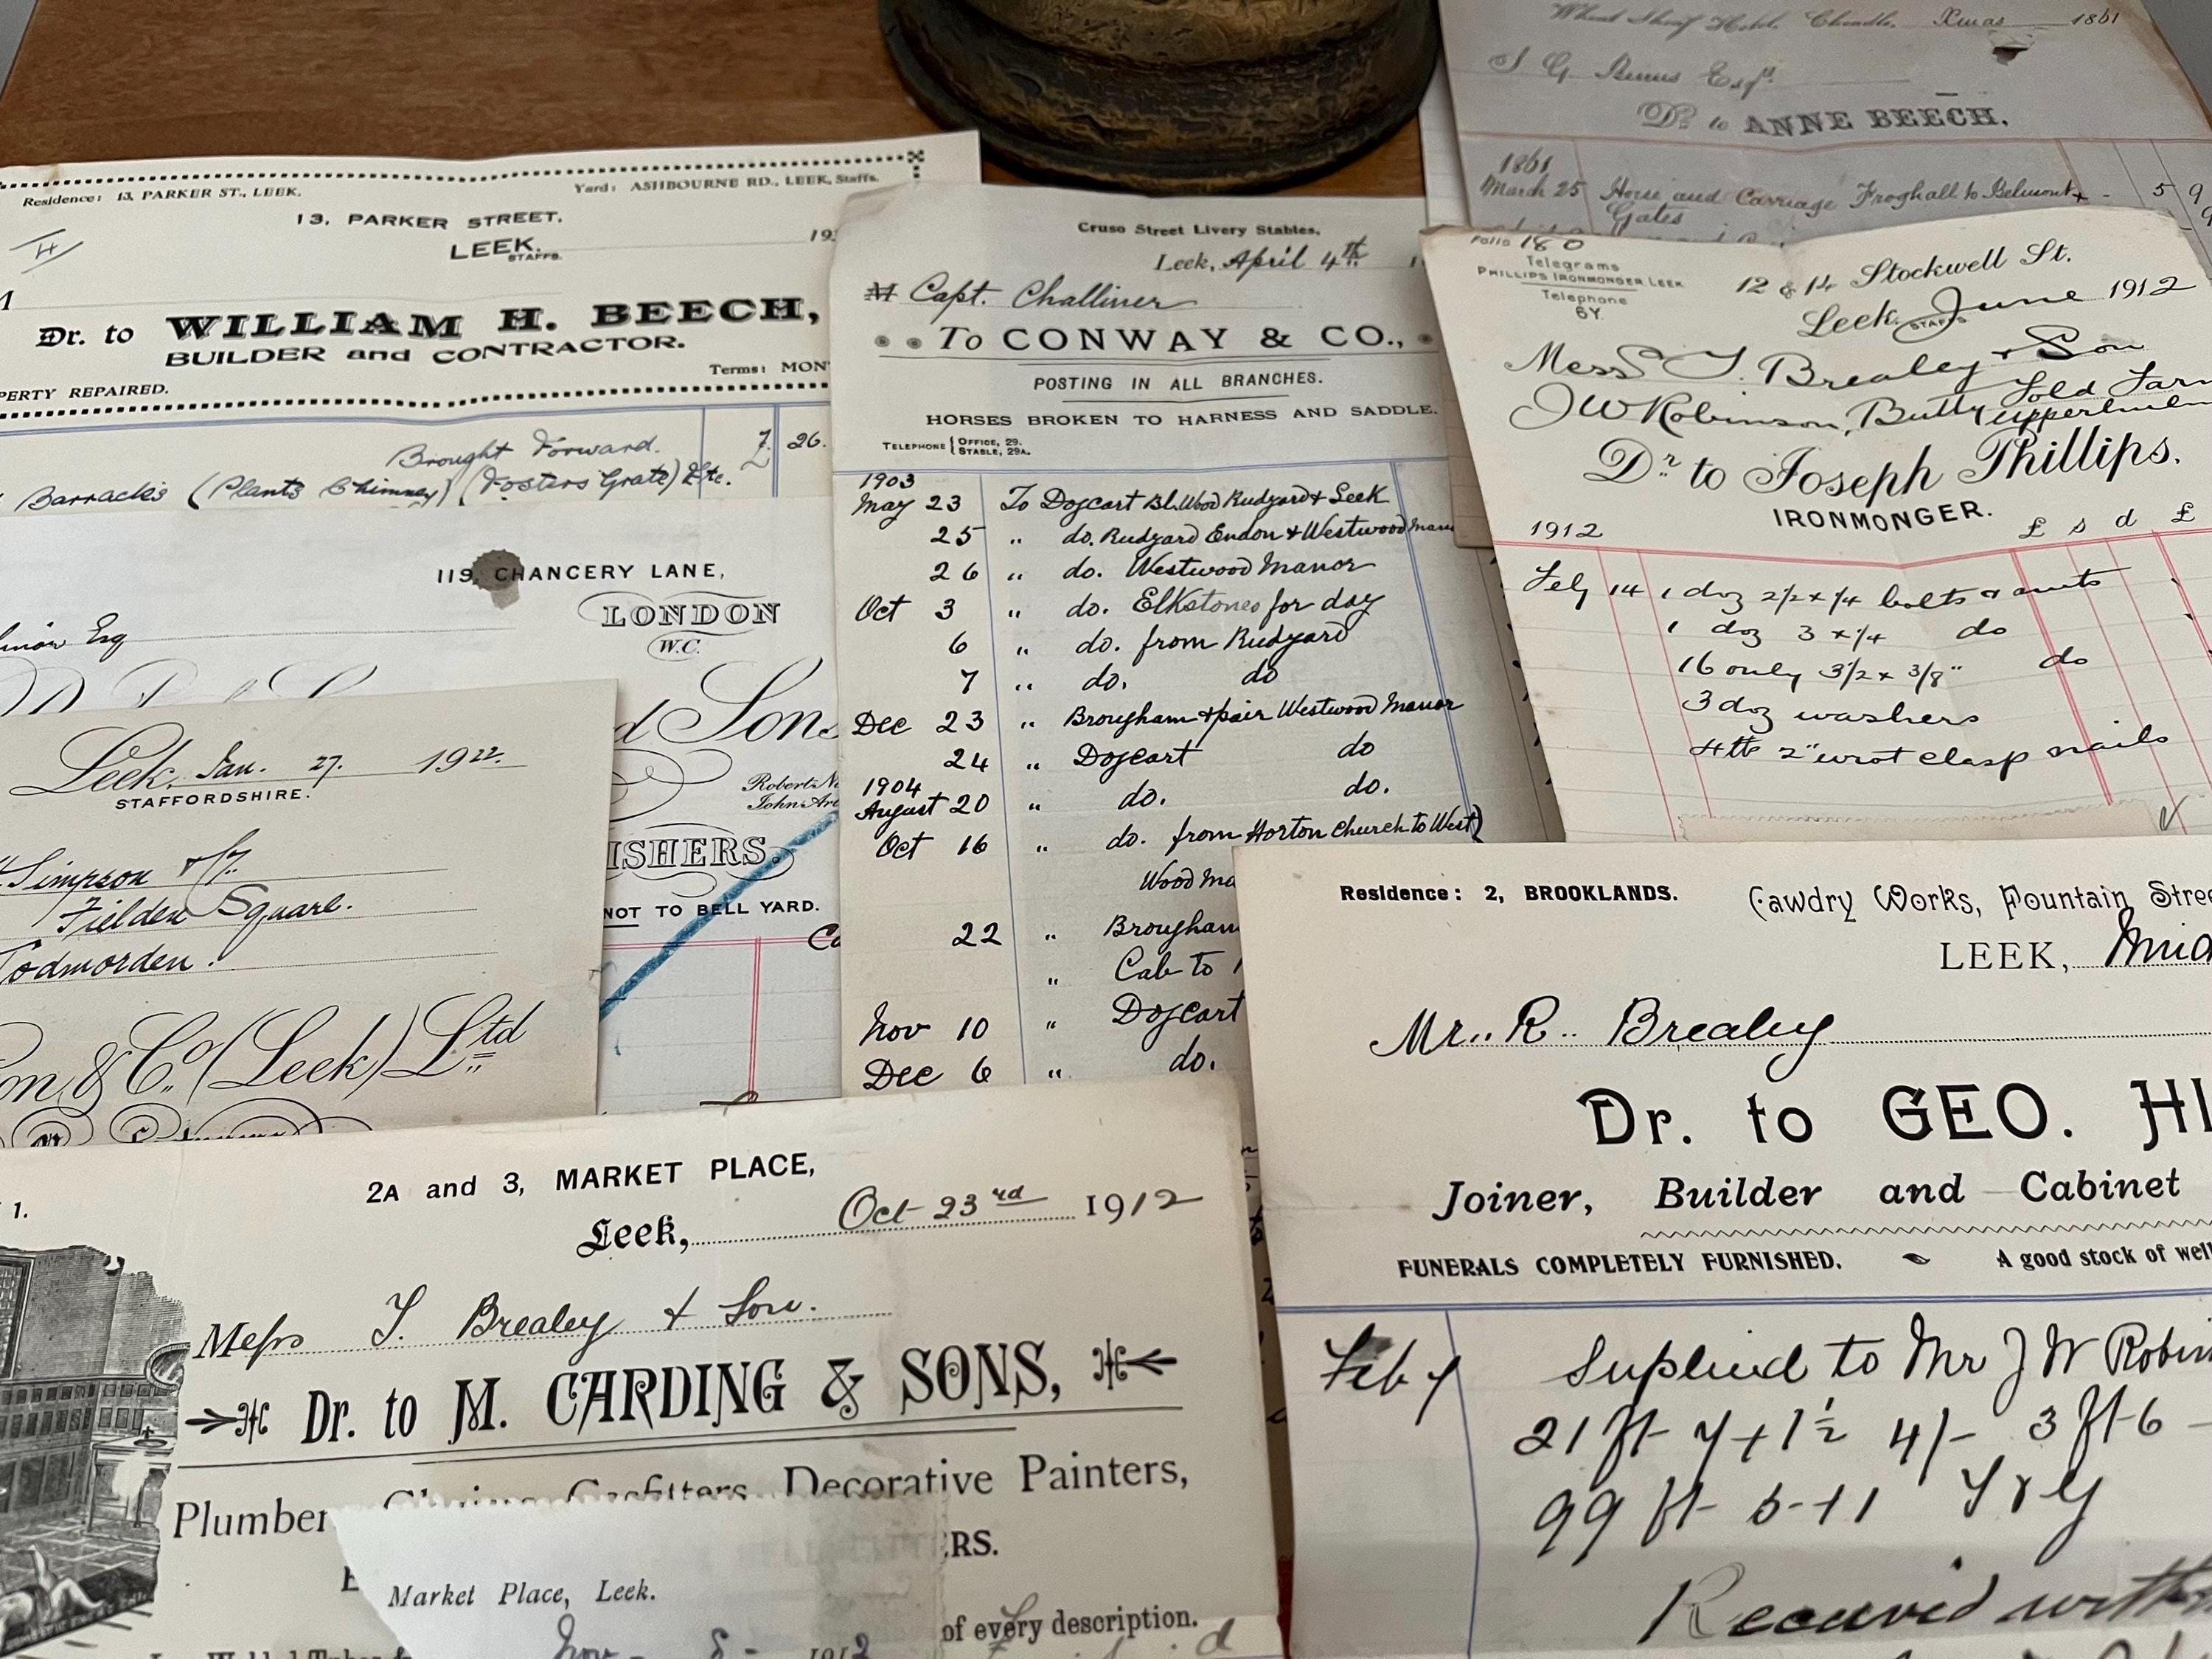 Residence: 13, PARKER ST., LEEK.
Yard: ASHBOURNE RD., LEEK, Staffs.
13, PARKER STREET,
LEEK.
STAFFS.
19
Dr. to WILLIAM H. BEECH,
BUILDER and CONTRACTOR.
Terms: MON
PERTY REPAIRED.
Brought Forward. 7. 26.
Barracks (Plants Chimney) (Fosters Grate) Etc.
119, CHANCERY LANE,
LONDON
W.C.
Esq
d Sons
Robert N
John Ar
ISHERS.
NOT TO BELL YARD.
Leek, Jan. 27. 1922.
STAFFORDSHIRE.
Simpson
Fielden Square.
Todmorden.
on & Co. (Leek) Ltd
Cruso Street Livery Stables,
Leek, April 4th
M Capt. Challiner
To CONWAY & CO.,
POSTING IN ALL BRANCHES.
HORSES BROKEN TO HARNESS AND SADDLE.
TELEPHONE { OFFICE, 29.
STABLE, 29A.
1903
May 23 To Dogcart Bl. Wood Rudyard & Leek
25 " do. Rudyard Endon & Westwood Man
26 " do. Westwood Manor
Oct 3 " do. Elkstones for day
6 " do. from Rudyard
7 " do. do
Dec 23 " Brougham & pair Westwood Manor
24 " Dogcart do
1904
August 20 " do. do.
Oct 16 " do. from Horton Church to West
Wood Ma
22 " Brougham
" Cab to
Nov 10 " Dogcart
Dec 6 " do.
Wheat Sheaf Hotel, Cheadle. Xmas 1861
Esqr.
Dr. to ANNE BEECH.
1861
March 25 Horse and Carriage Froghall to Belmont 5 9
Gates
Folio 180
Telegrams
PHILLIPS IRONMONGER LEEK
Telephone
6Y.
12 & 14 Stockwell St.
Leek, STAFFS June 1912
Mess T. Brealey & Son
J W Robinson, Butty
Dr. to Joseph Phillips.
IRONMONGER.
1912 £ s d £
Feby 14 1 doz 2½ x ¼ bolts & nuts
1 doz 3 x ¼ do
16 only 3½ x 3/8" do
3 doz washers
4 lb 2" wrot clasp nails
Residence: 2, BROOKLANDS.
Cawdry Works, Fountain Stree
LEEK,
Mr. R. Brealey
Dr. to GEO. HI
Joiner, Builder and Cabinet
FUNERALS COMPLETELY FURNISHED.
A good stock of well
Feb
Suplied to Mr J W Robin
21 ft 7 + 1½ 4/- 3 ft 6
99 ft
Received with
1.
2A and 3, MARKET PLACE,
Leek, Oct 23rd 1912
Messrs T. Brealey & Son.
Dr. to M. CARDING & SONS,
Plumber
Gasfitters, Decorative Painters,
ERS.
Market Place, Leek.
of every description.
Nov 8 - 1912